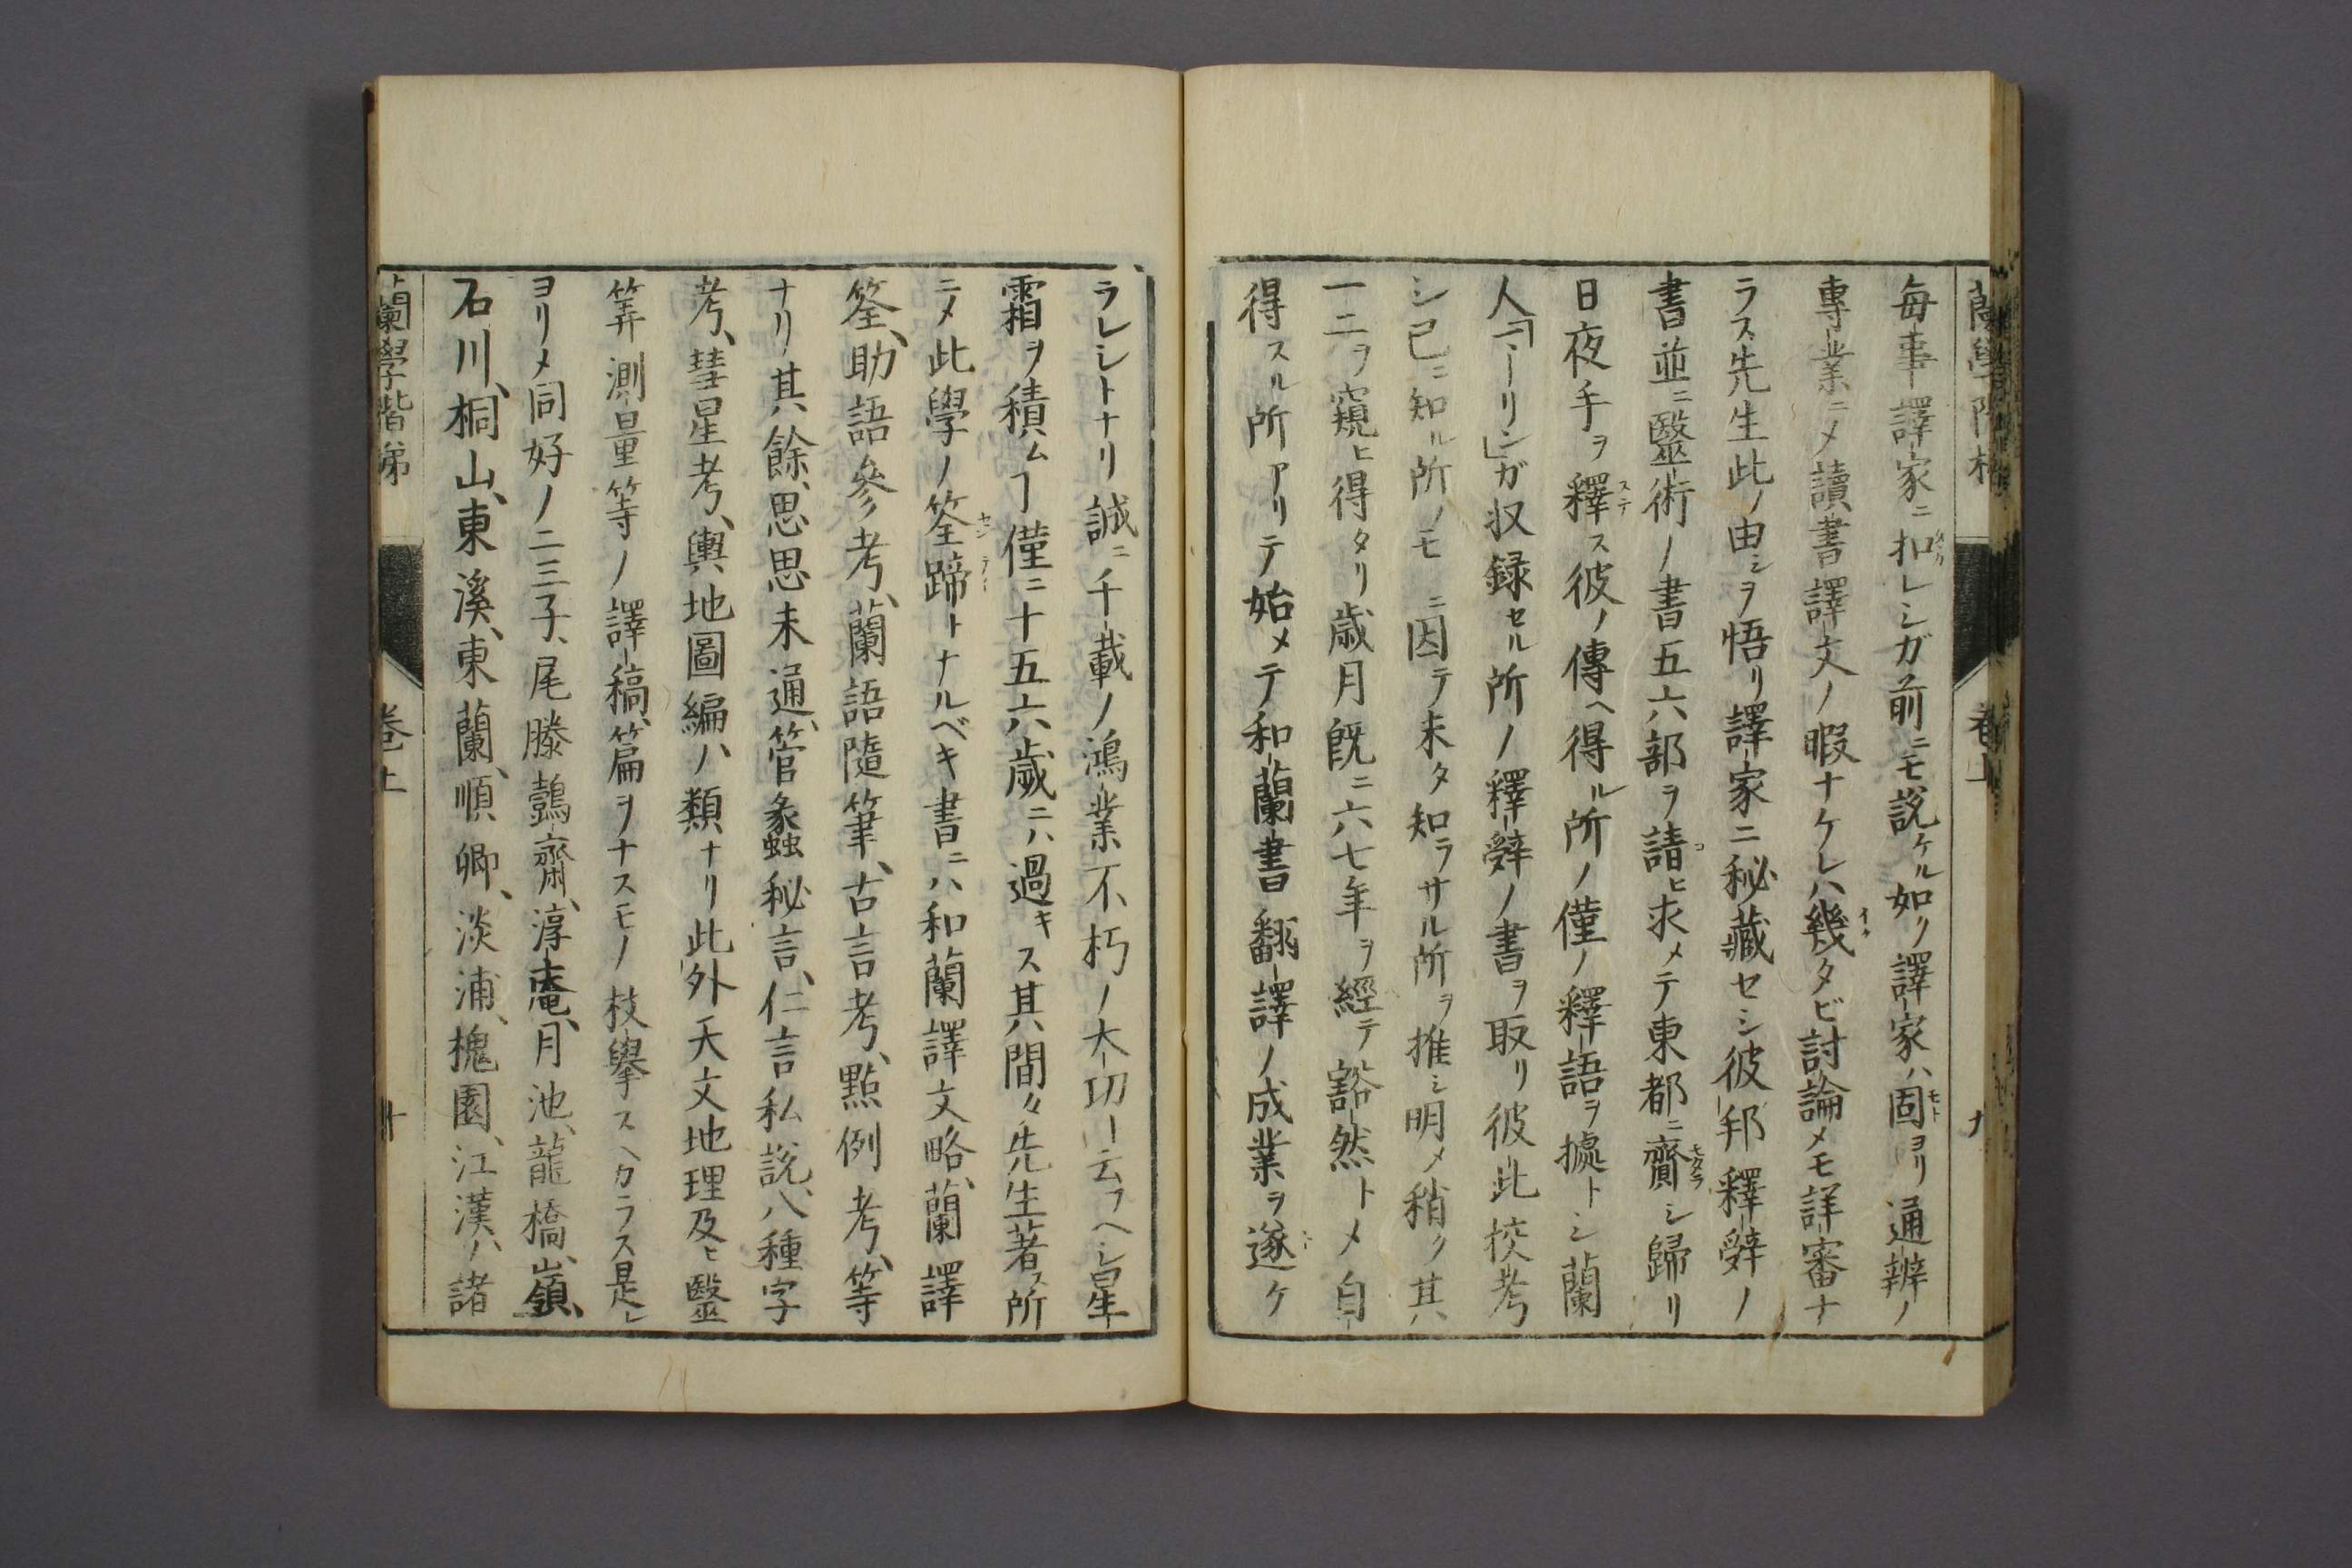 蘭學階梯 卷上 九
每事譯家ニ扣レシガ前ニモ説ケル如ク譯家ハ固ヨリ通辨ノ
專業ニメ讀書譯文ノ暇ナケレハ幾タビ討論メモ詳審ナ
ラス先生此ノ由シヲ悟リ譯家ニ秘藏セシ彼邦釋辭ノ
書並ニ醫術ノ書五六部ヲ請ヒ求メテ東都ニ齎シ歸リ
日夜手ヲ釋ス彼ノ傳ヘ得ル所ノ僅ノ釋語ヲ據トシ蘭
人「マーリン」ガ収録セル所ノ釋辭ノ書ヲ取リ彼此挍考
シ已ニ知ル所ノモニ因テ未タ知ラサル所ヲ推シ明メ稍ク其
一二ヲ窺ヒ得タリ歳月既ニ六七年ヲ經テ豁然トメ自
得スル所アリテ始メテ和蘭書翻譯ノ成業ヲ遂ケ
ラレシトナリ誠ニ千載ノ鴻業不朽ノ大功ト云フヘシ星
霜ヲ積ムヿ僅ニ十五六歲ニハ過キス其間々先生著ス所
ニメ此學ノ筌蹄トナルベキ書ニハ和蘭譯文略、蘭譯
筌、助語參考、蘭語隨筆、古言考、點例考、等
ナリ其餘、思思未通、管蠡秘言、仁言私説、八種字
考、彗星考、輿地圖編ノ類ナリ此外天文地理及ヒ醫
筭測量等ノ譯稿、篇ヲナスモノ枝擧スヘカラス是レ
ヨリメ同好ノ二三子、尾滕鷧齋、淳庵、月池、龍橋、嶺、
石川、桐山、東溪、東蘭、順卿、淡浦、槐園、江漢ノ諸
蘭學階梯 卷上 十